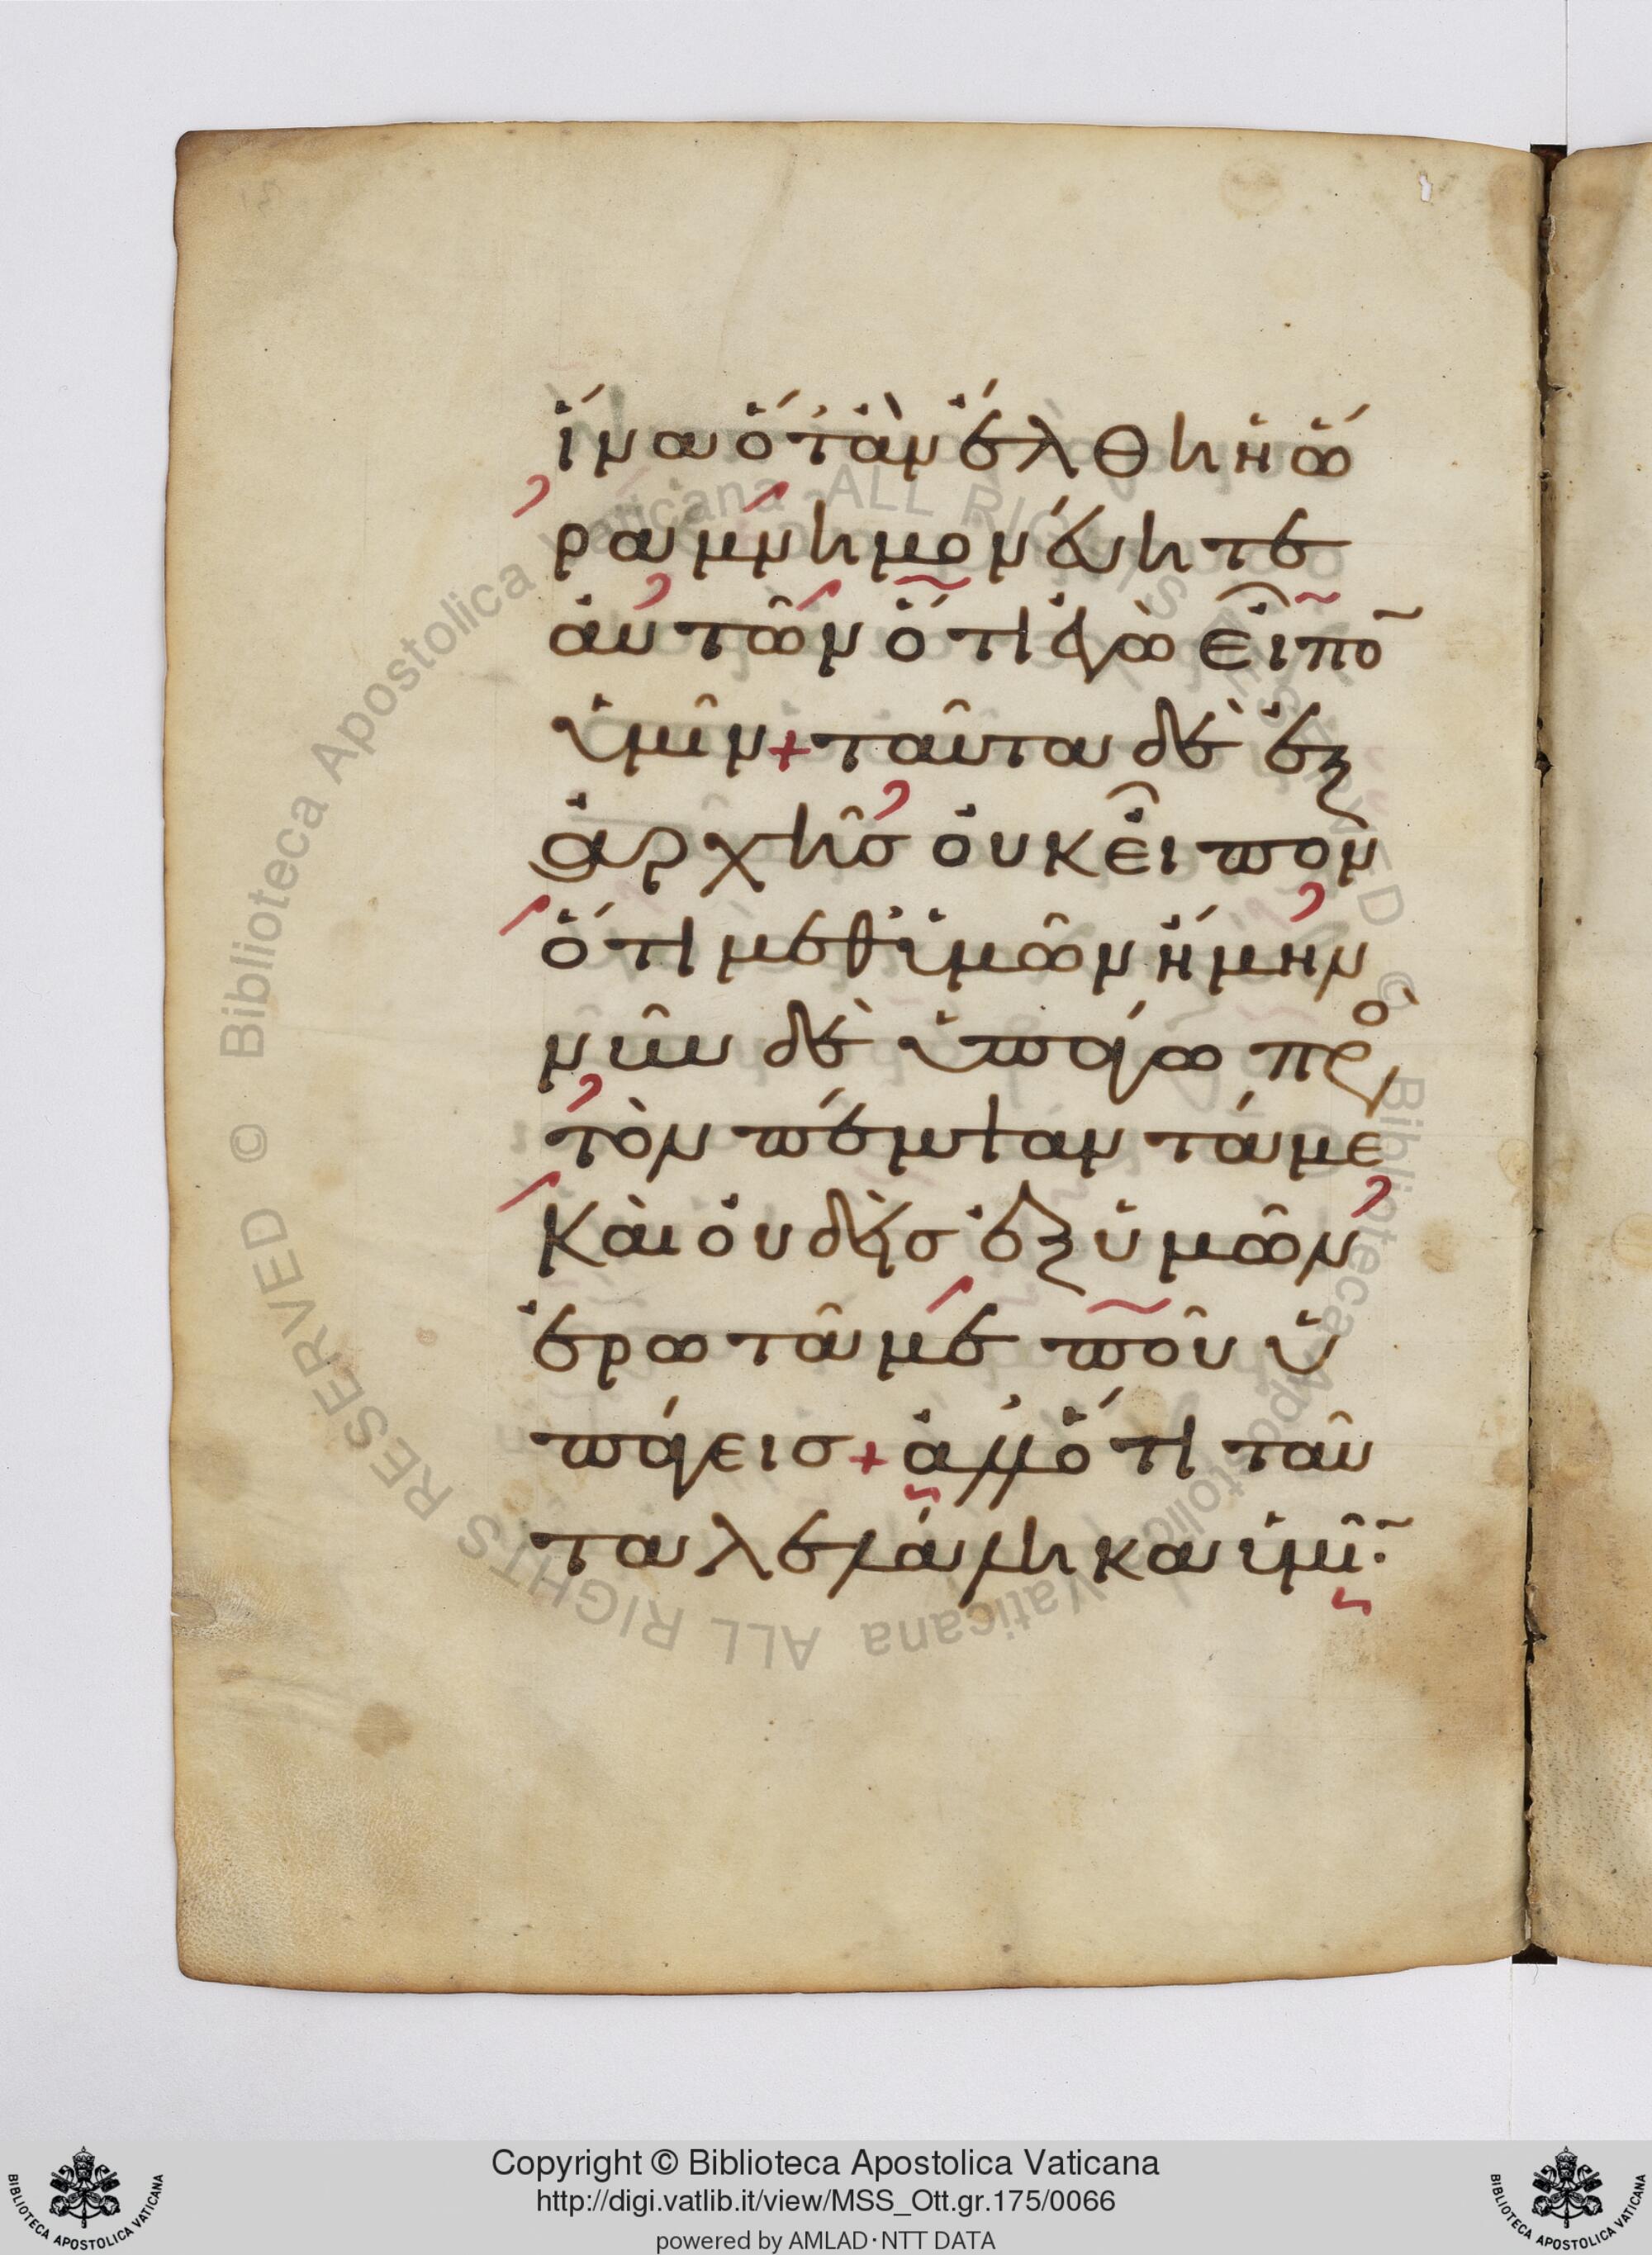 ἵνα ὅταν ἔλθη ἡ ὥ
ρα μνημονεύητε
αὐτῶν ὅτι ἐγὼ εἶπο̃
ὑμῖν + ταῦτα δὲ ἐξ
ἀρχῆσ οὐκ εἶπον
ὅτι μεθ' ὑμῶν ἤμην
νῦν δὲ ὑπάγω πρὸ
τὸν πέμψαντά με
καὶ οὐδεὶσ ἐξ ὑμῶν
ἐρωτᾶ με ποῦ ὑ
πάγεισ + ἀλλ' ὅτι ταῦ
τα λελάληκα ὑμῖ̃·
Copyright © Biblioteca Apostolica Vaticana
http://digi.vatlib.it/view/MSS_Ott.gr.175/0066
powered by AMLAD·NTT DATA
BIBLIOTECA APOSTOLICA VATICANA
BIBLIOTECA APOSTOLICA VATICANA
© Biblioteca Apostolica Vaticana ALL RIGHTS RESERVED © Biblioteca Apostolica Vaticana ALL RIGHTS RESERVED